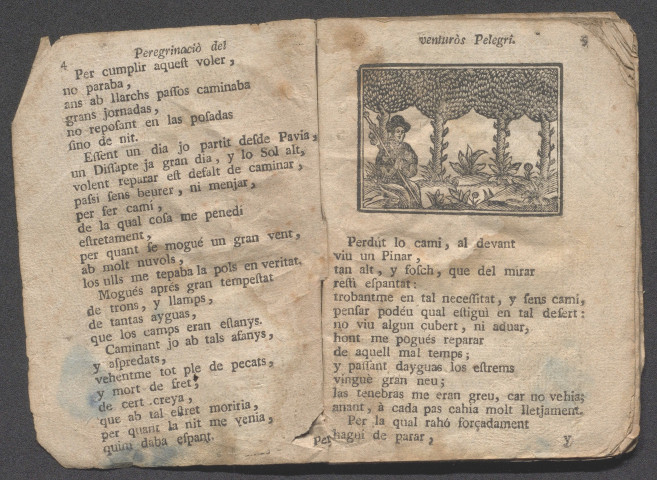 4 Peregrinaciò del
Per cumplir aqueſt voler,
no paraba,
ans ab llarchs paſſos caminaba
grans jornadas,
no repoſant en las poſadas
ſino de nit.
Eſſent un dia jo partit deſde Pavia,
un Diſſapte ja gran dia, y lo Sol alt,
volent reparar eſt defalt de caminar,
paſsi ſens beurer, ni menjar,
per fer cami,
de la qual coſa me penedi
eſtretament,
per quant ſe mogué un gran vent,
ab molt nuvols,
los ulls me tepaba la pols en veritat.
Mogués aprés gran tempeſtat
de trons, y llamps,
de tantas ayguas,
que los camps eran eſtanys.
Caminant jo ab tals afanys,
y aſpredats,
vehentme tot ple de pecats,
y mort de fret,
de cert creya,
que ab tal eſtret moriria,
per quant la nit me venia,
quim daba eſpant.
Per
venturòs Pelegri. 5
Perdút lo cami, al devant
viu un Pinar,
tan alt, y foſch, que del mirar
reſti eſpantat:
trobantme en tal neceſſitat, y ſens cami,
penſar podéu qual eſtigui en tal deſert:
no viu algun cubert, ni aduar,
hont me pogués reparar
de aquell mal temps;
y paſſant dayguas los eſtrems
vingué gran neu;
las tenebras me eran greu, car no vehia;
anant, à cada pas cahia molt lletjament.
Per la qual rahó forçadament
hagui de parar,
y